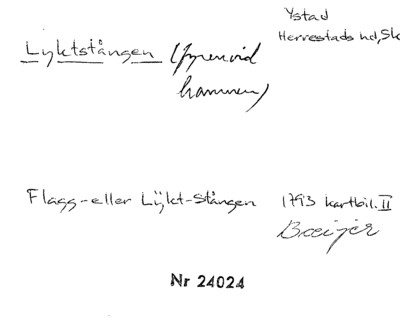 Ystad
Herrestads hd, Sk
Lyktstången (fyren vid
hamnen)
Flagg-eller Lÿkt-Stången 1793 kartbil. II
Boeijer
Nr 24024